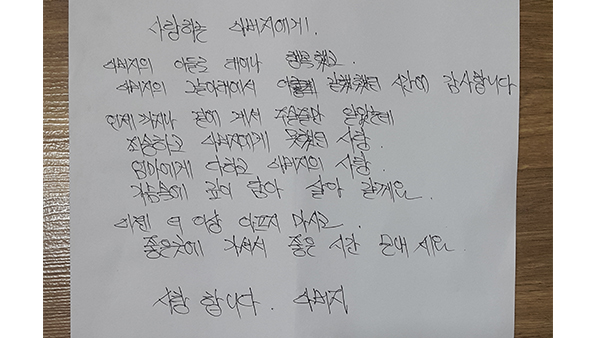 사랑하는 아버지에게!
아버지의 아들로 태어나 행복했고
아버지의 그늘아래에서 함께했던 시간에 감사합니다
언제까지나 곁에 계셔 주실줄만 알았는데
죄송하고 아버지에게 못했던 사랑.
엄마에게 다하고 아버지의 사랑.
가슴속에 깊이 담아 살아 갈게요.
이젠 더 이상 아프지 마시고.
좋은곳에 가셔서 좋은 시간 보내 세요.
사랑 합니다. 아버지